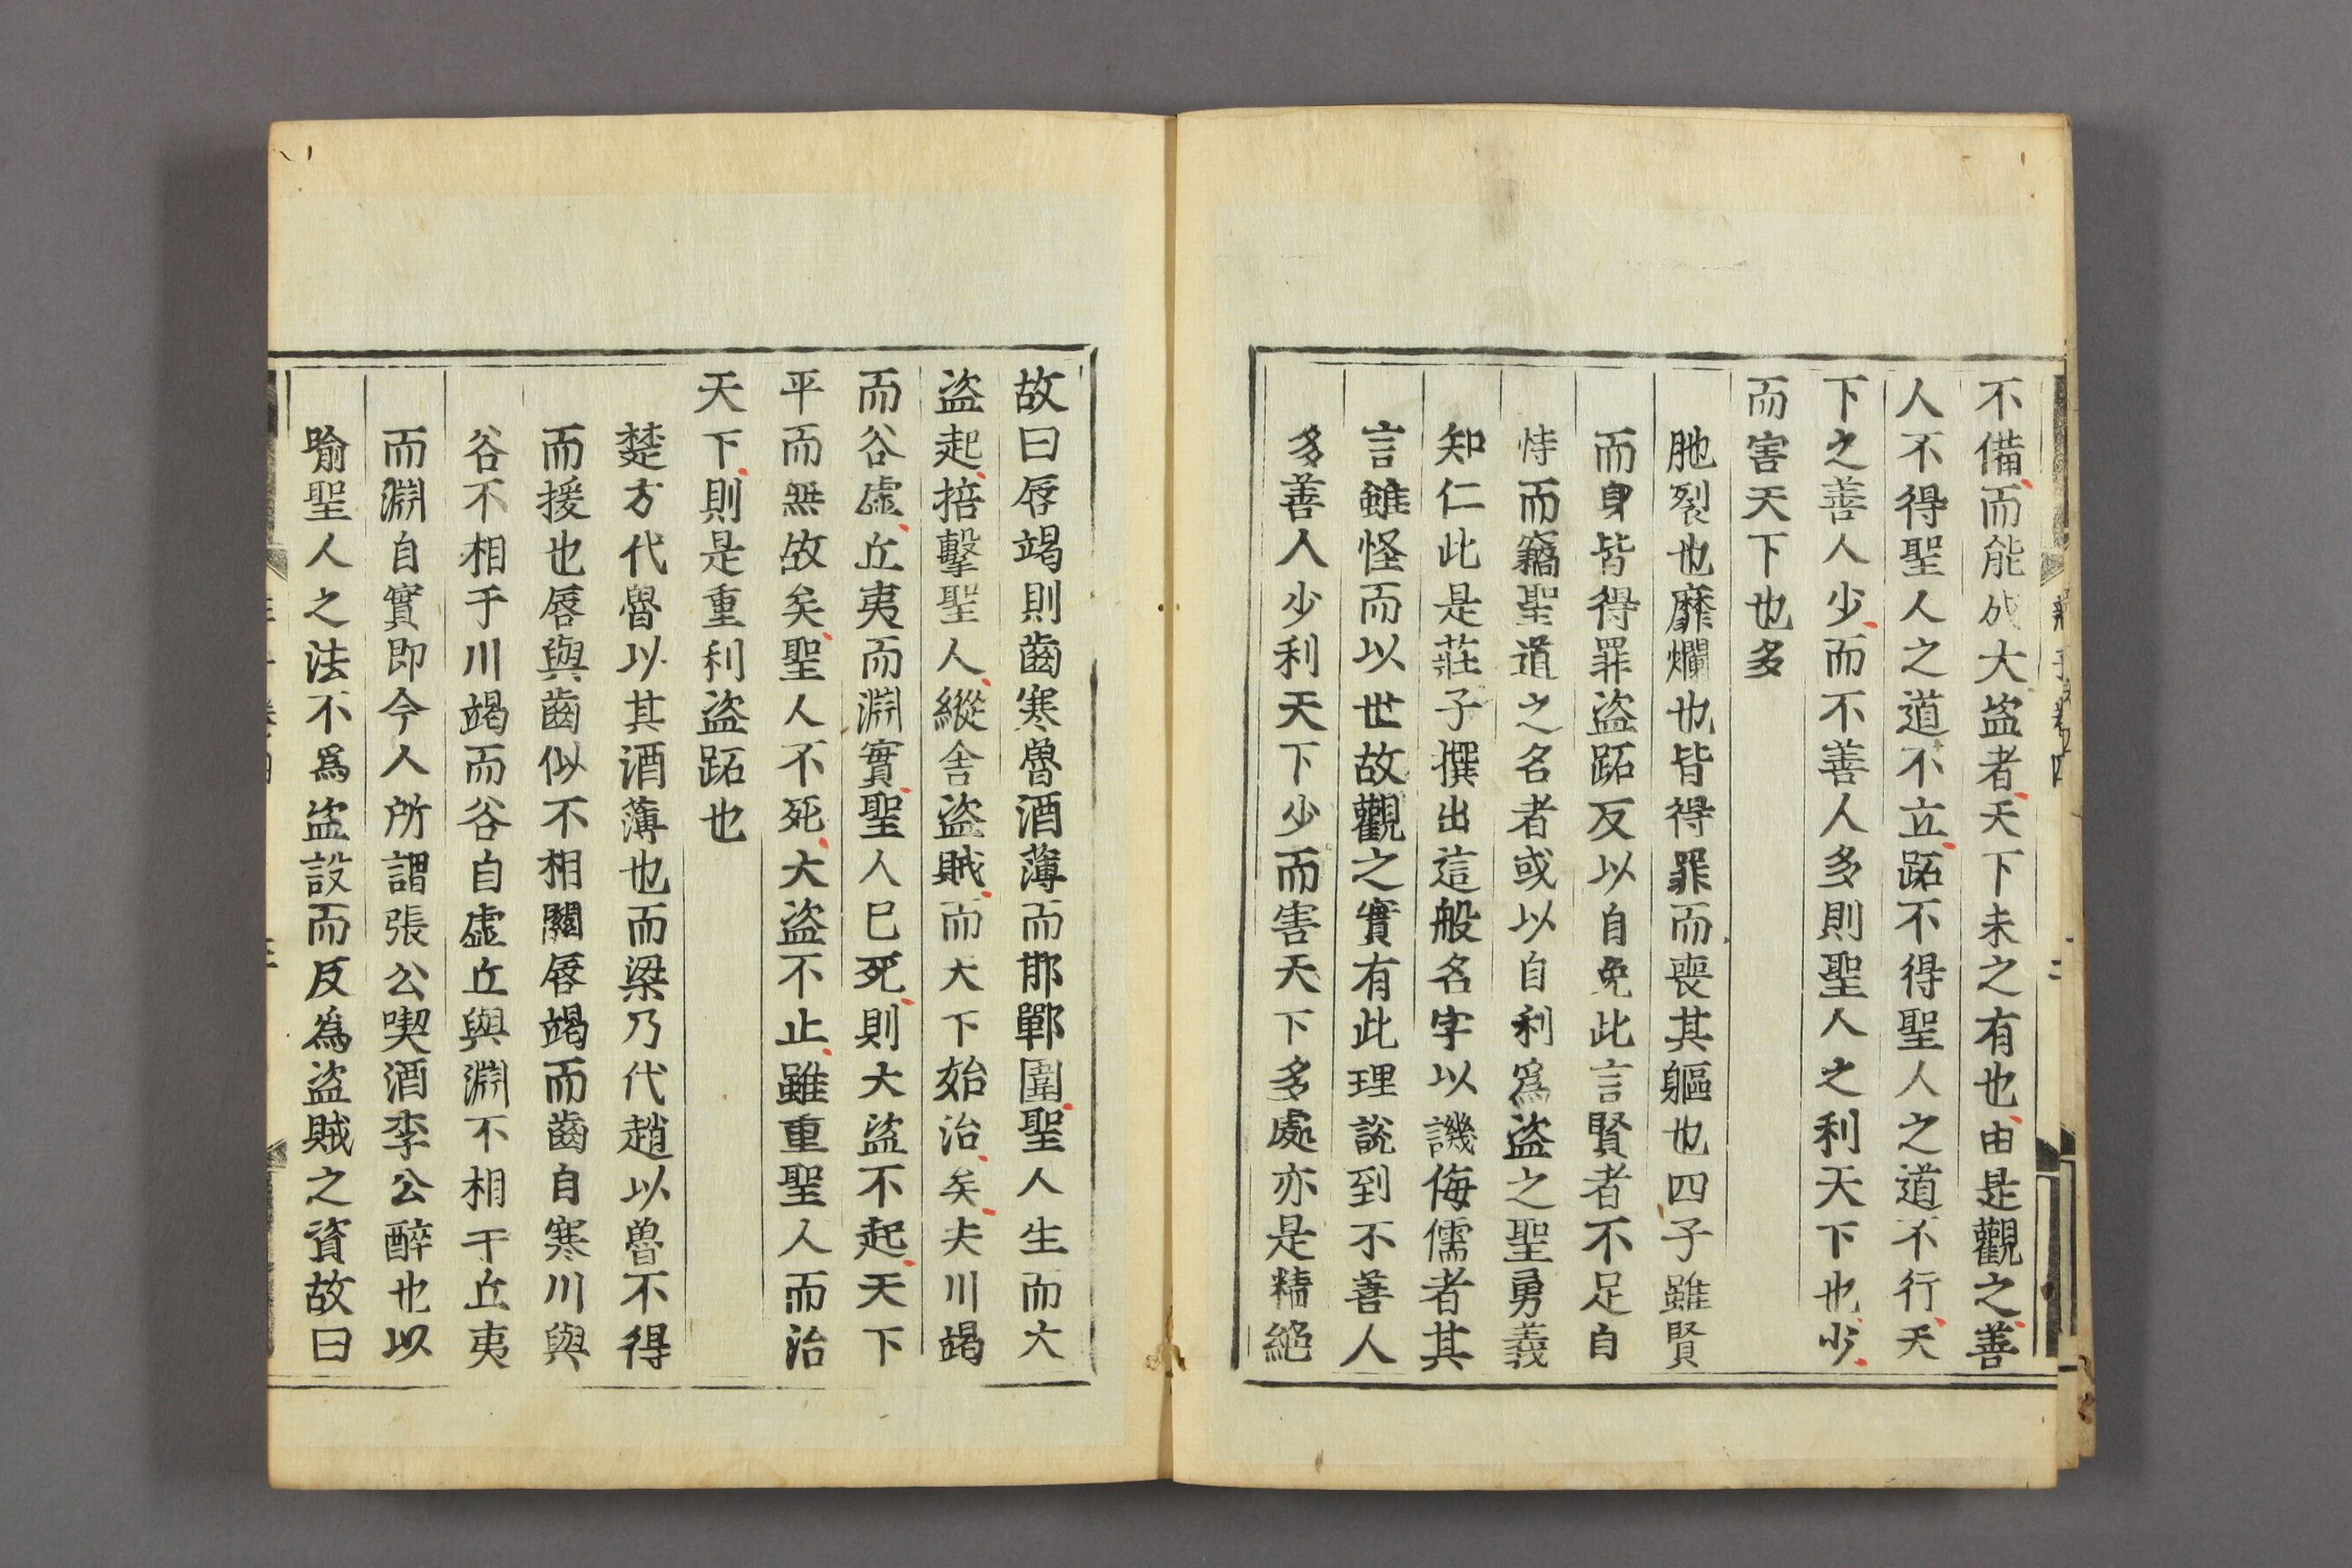 不備而能成大盜者天下未之有也由是觀之善
人不得聖人之道不立跖不得聖人之道不行天
下之善人少而不善人多則聖人之利天下也少
而害天下也多
胣裂也靡爛也皆得罪而喪其軀也四子雖賢
而身皆得罪盜跖反以自免此言賢者不足自
恃而竊聖道之名者或以自利爲盜之聖勇義
知仁此是莊子撰出這般名字以譏侮儒者其
言雖怪而以世故觀之實有此理說到不善人
多善人少利天下少而害天下多處亦是精絕
故曰唇竭則齒寒魯酒薄而邯鄲圍聖人生而大
盜起掊擊聖人縱舍盜賊而天下始治矣夫川竭
而谷虛丘夷而淵實聖人已死則大盜不起天下
平而無故矣聖人不死大盜不止雖重聖人而治
天下則是重利盜跖也
楚方代魯以其酒薄也而梁乃代趙以魯不得
而援也唇與齒似不相關唇竭而齒自寒川與
谷不相干川竭而谷自虛丘與淵不相干丘夷
而淵自實即今人所謂張公喫酒李公醉也以
喻聖人之法不爲盜設而反為盜賊之資故曰